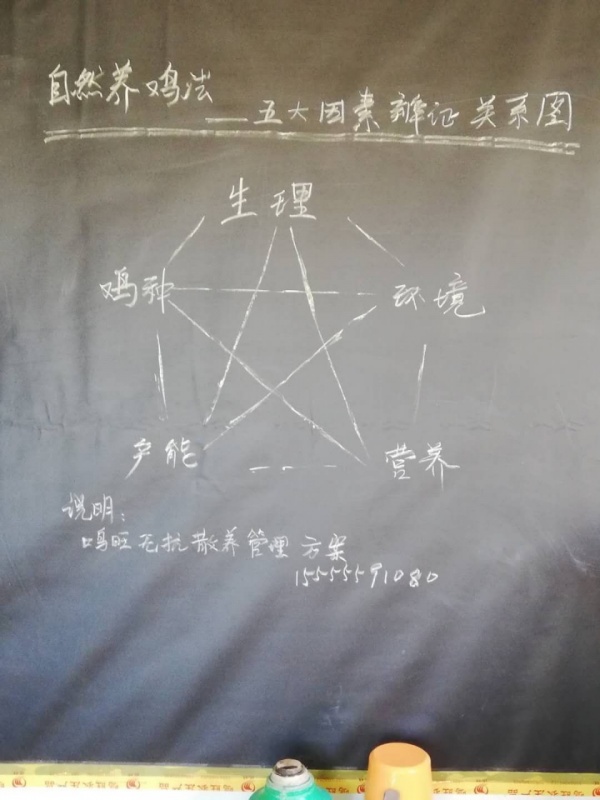 自然养鸡法
——五大因素辩证关系图
生理
鸡种
环境
产能
营养
说明：
鸣旺无抗散养管理方案
15555591080